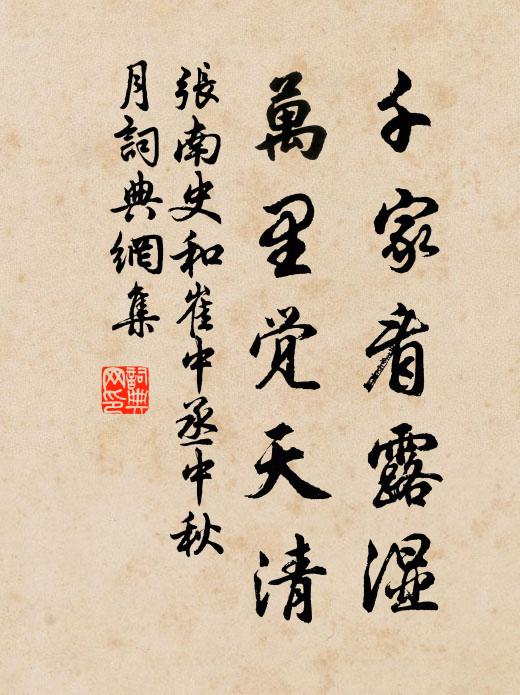 千家看露湿
萬里觉天清
張南史和崔中丞中秋
月詞典網集
詞典网印